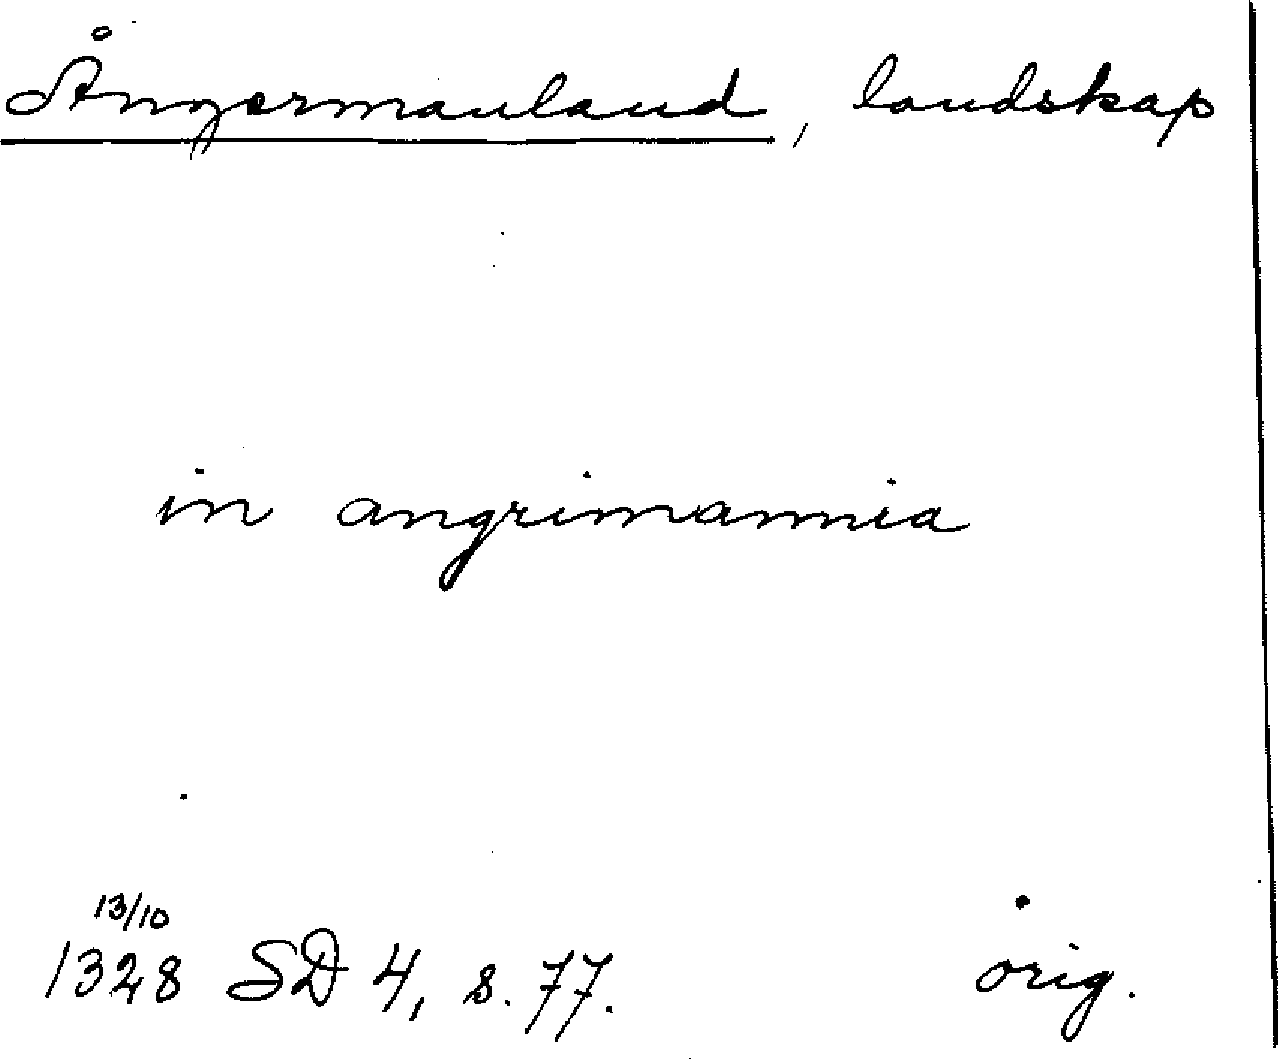 Ångermanland, landskap
in angrimannia
13/10
1328 SD 4, s. 77. orig.